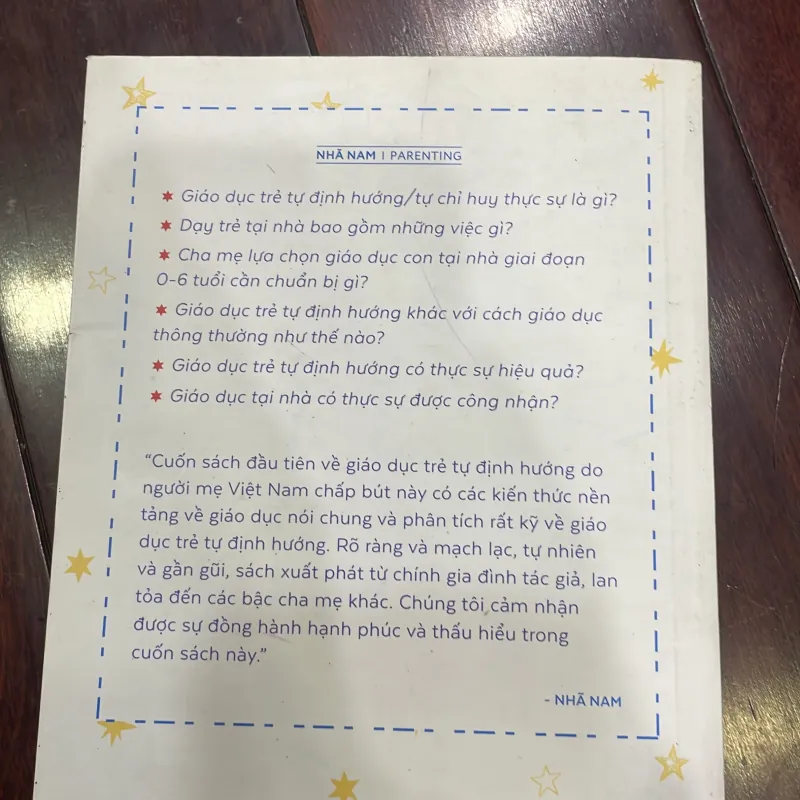 NHÃ NAM | PARENTING
Giáo dục trẻ tự định hướng/tự chỉ huy thực sự là gì?
Dạy trẻ tại nhà bao gồm những việc gì?
Cha mẹ lựa chọn giáo dục con tại nhà giai đoạn
0-6 tuổi cần chuẩn bị gì?
Giáo dục trẻ tự định hướng khác với cách giáo dục
thông thường như thế nào?
Giáo dục trẻ tự định hướng có thực sự hiệu quả?
Giáo dục tại nhà có thực sự được công nhận?
“Cuốn sách đầu tiên về giáo dục trẻ tự định hướng do
người mẹ Việt Nam chấp bút này có các kiến thức nền
tảng về giáo dục nói chung và phân tích rất kỹ về giáo
dục trẻ tự định hướng. Rõ ràng và mạch lạc, tự nhiên
và gần gũi, sách xuất phát từ chính gia đình tác giả, lan
tỏa đến các bậc cha mẹ khác. Chúng tôi cảm nhận
được sự đồng hành hạnh phúc và thấu hiểu trong
cuốn sách này.”
- NHÃ NAM